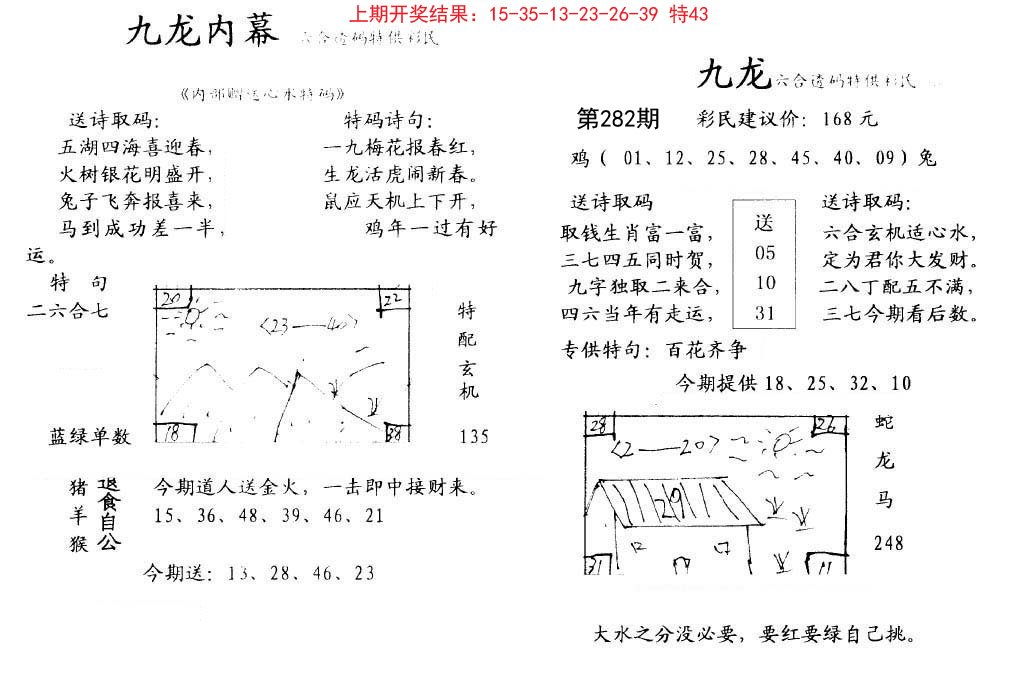 上期开奖结果：15-35-13-23-26-39 特43
九龙内幕 六合透码特供彩民
《内部赠送心水特码》
送诗取码：
五湖四海喜迎春，
火树银花明盛开，
兔子飞奔报喜来，
马到成功差一半，
特码诗句：
一九梅花报春红，
生龙活虎闹新春。
鼠应天机上下开，
鸡年一过有好
运。
特 句
二六合七
蓝绿单数
20
22
<23——40>
18
38
特
配
玄
机
135
猪
羊
猴
退食自公
今期道人送金火，一击即中接财来。
15、36、48、39、46、21
今期送：13、28、46、23
九龙六合透码特供彩民
第282期 彩民建议价：168元
鸡（ 01、12、25、28、45、40、09）兔
送诗取码
取钱生肖富一富，
三七四五同时贺，
九字独取二来合，
四六当年有走运，
送
05
10
31
送诗取码：
六合玄机适心水，
定为君你大发财。
二八丁配五不满，
三七今期看后数。
专供特句：百花齐争
今期提供18、25、32、10
28
26
<2——20>
29
31
11
蛇
龙
马
248
大水之分没必要，要红要绿自己挑。